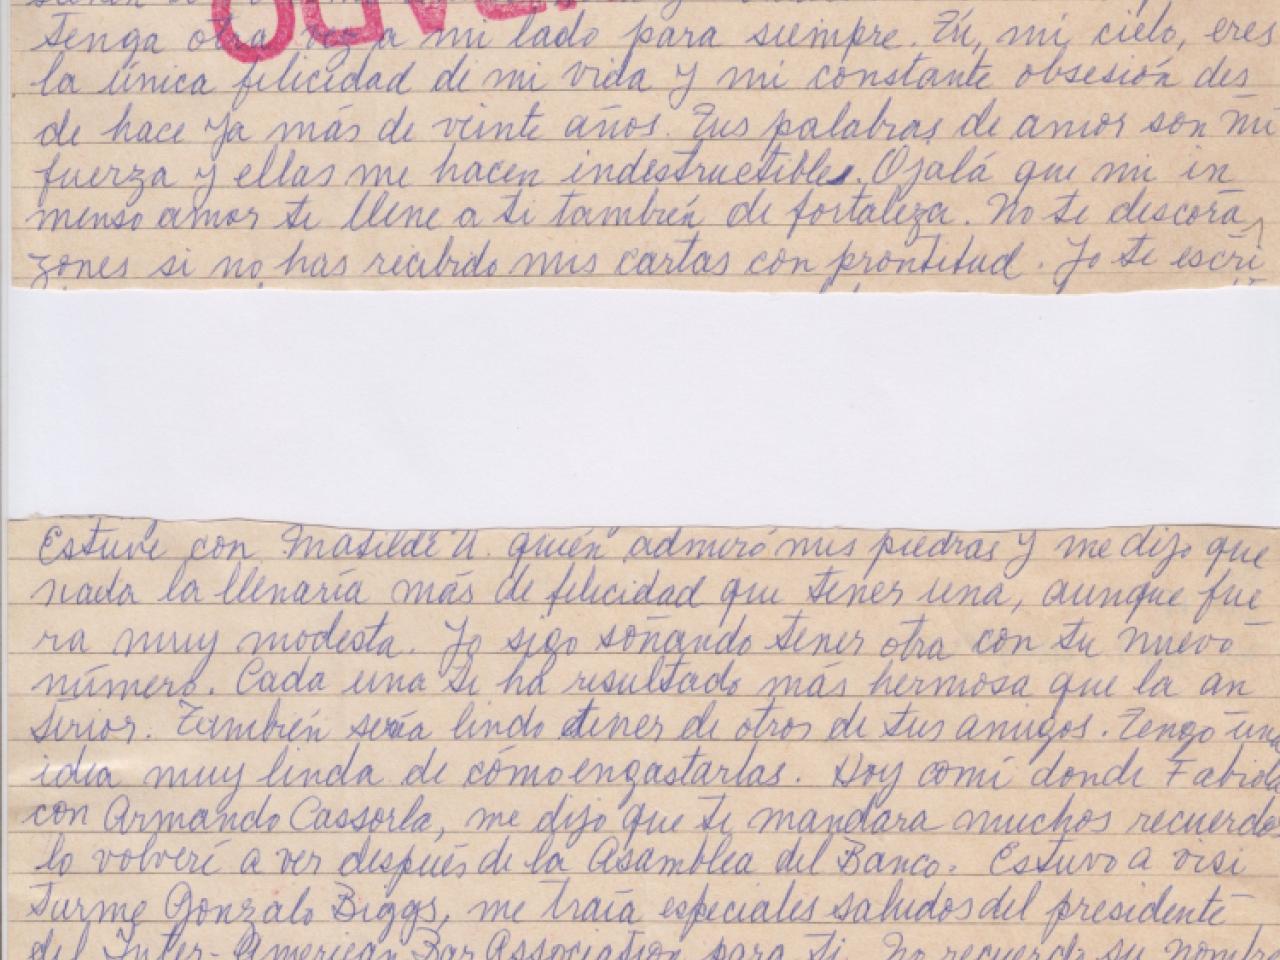 tenga otra vez a mi lado para siempre. Tú, mi cielo, eres
la única felicidad de mi vida y mi constante obsesión des
de hace ya más de veinte años. Tus palabras de amor son mi
fuerza y ellas me hacen indestructible. Ojalá que mi in
menso amor te llene a ti también de fortaleza. No te descora
zones si no has recibido mis cartas con prontitud. Yo te escri
Estuve con Matilde U. quién admiró mis piedras y me dijo que
nada la llenaría más de felicidad que tener una, aunque fue
ra muy modesta. Yo sigo soñando tener otra con tu nuevo
número. Cada una te ha resultado más hermosa que la an
terior. También sería lindo tener de otros de tus amigos. Tengo una
idea muy linda de cómo engastarlas. Hoy comí donde Fabiola
con Armando Cassorla, me dijo que te mandara muchos recuerdo
lo volveré a ver después de la Asamblea del Banco. Estuvo a visi
tarme Gonzalo Biggs, me traía especiales saludos del presidente
del Inter-American Bar Association para ti. No recuerdo su nombre